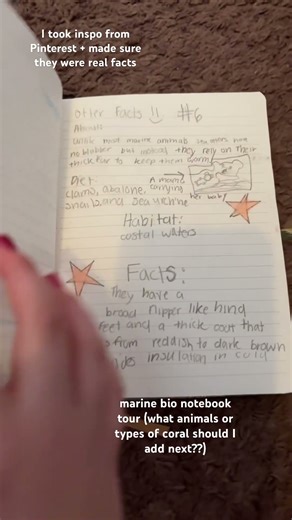 I took inspo from
Pinterest + made sure
they were real facts
Otter Facts !! #6
Unlike most marine animals sea otters have
no blubber but instead they rely on their
thick fur to keep them warm
Diet
clams, abalone,
snails and sea urchins
A mom
carrying
her baby
Habitat:
costal waters
Facts:
They have a
broad flipper like hind
feet and a thick coat that
from reddish to dark brown
insulation in cold
marine bio notebook
tour (what animals or
types of coral should I
add next??)